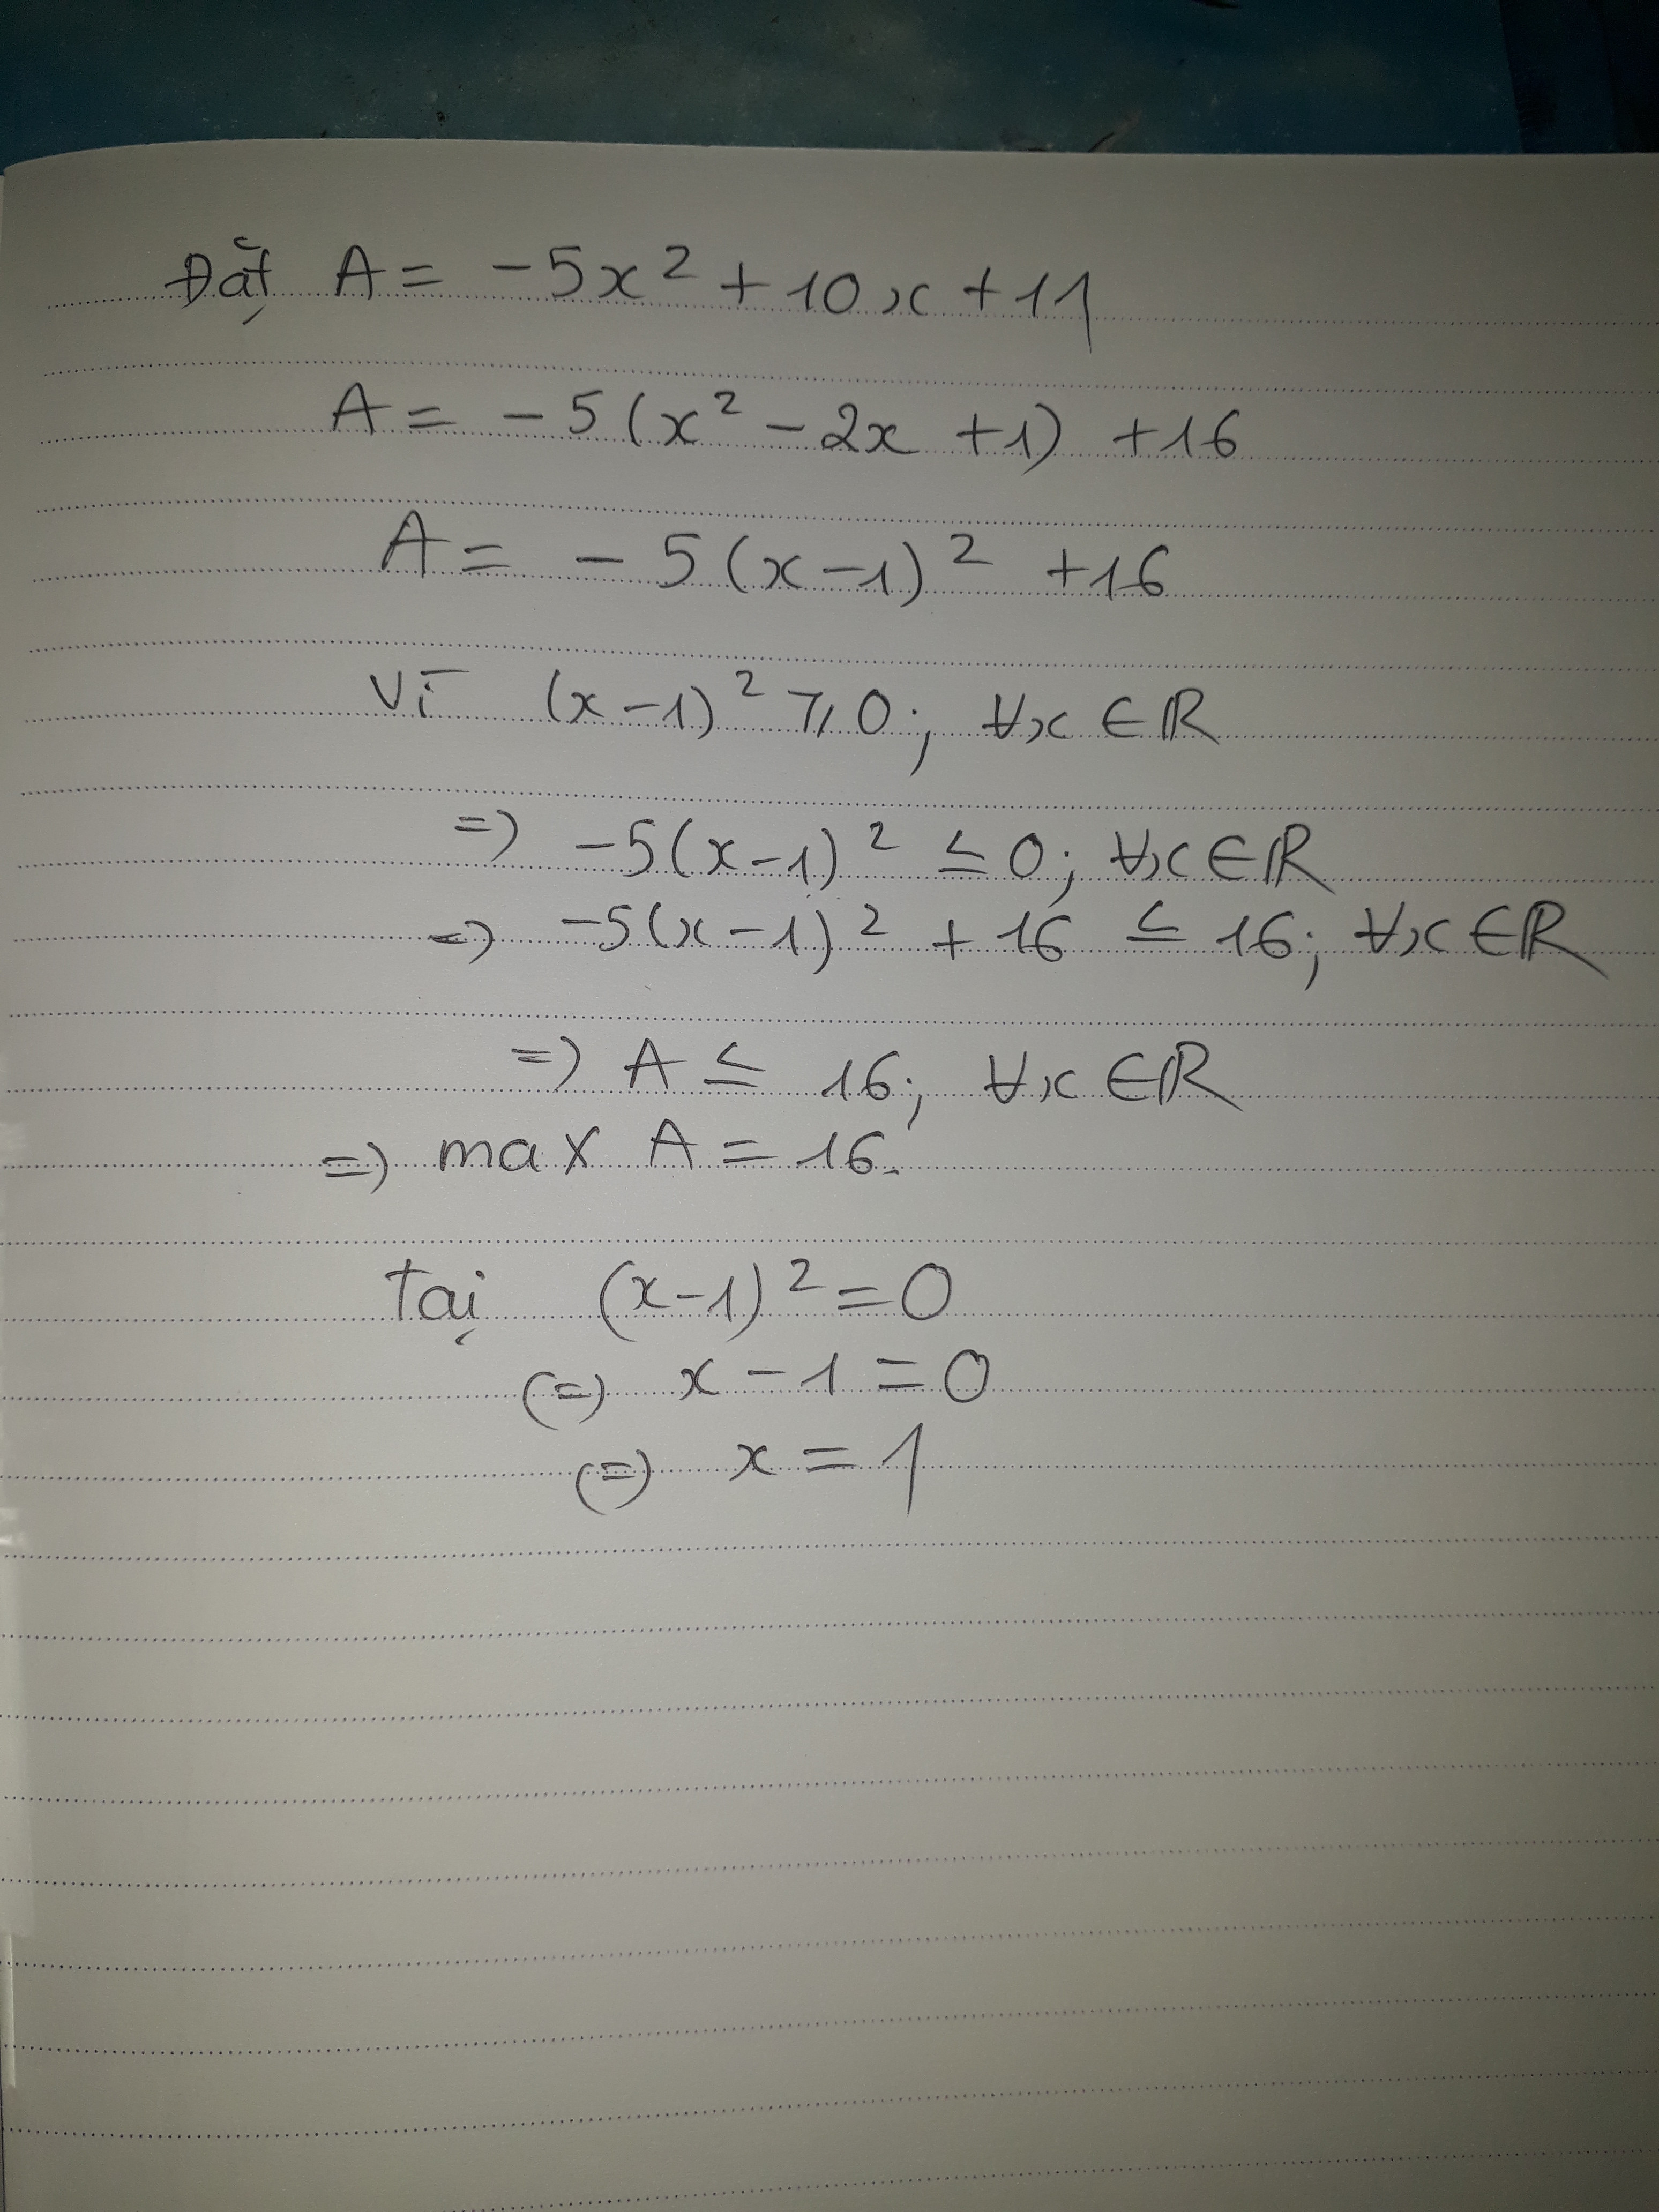 Đặt A = -5x² + 10x + 11
A = -5(x² - 2x + 1) + 16
A = -5(x-1)² + 16
Vì (x-1)² ⩾ 0; ∀x ∈ ℝ
=> -5(x-1)² ≤ 0; ∀x ∈ ℝ
=> -5(x-1)² + 16 ≤ 16; ∀x ∈ ℝ
=> A ≤ 16; ∀x ∈ ℝ
=> max A = 16.
Tại (x-1)² = 0
(=) x - 1 = 0
(=) x = 1